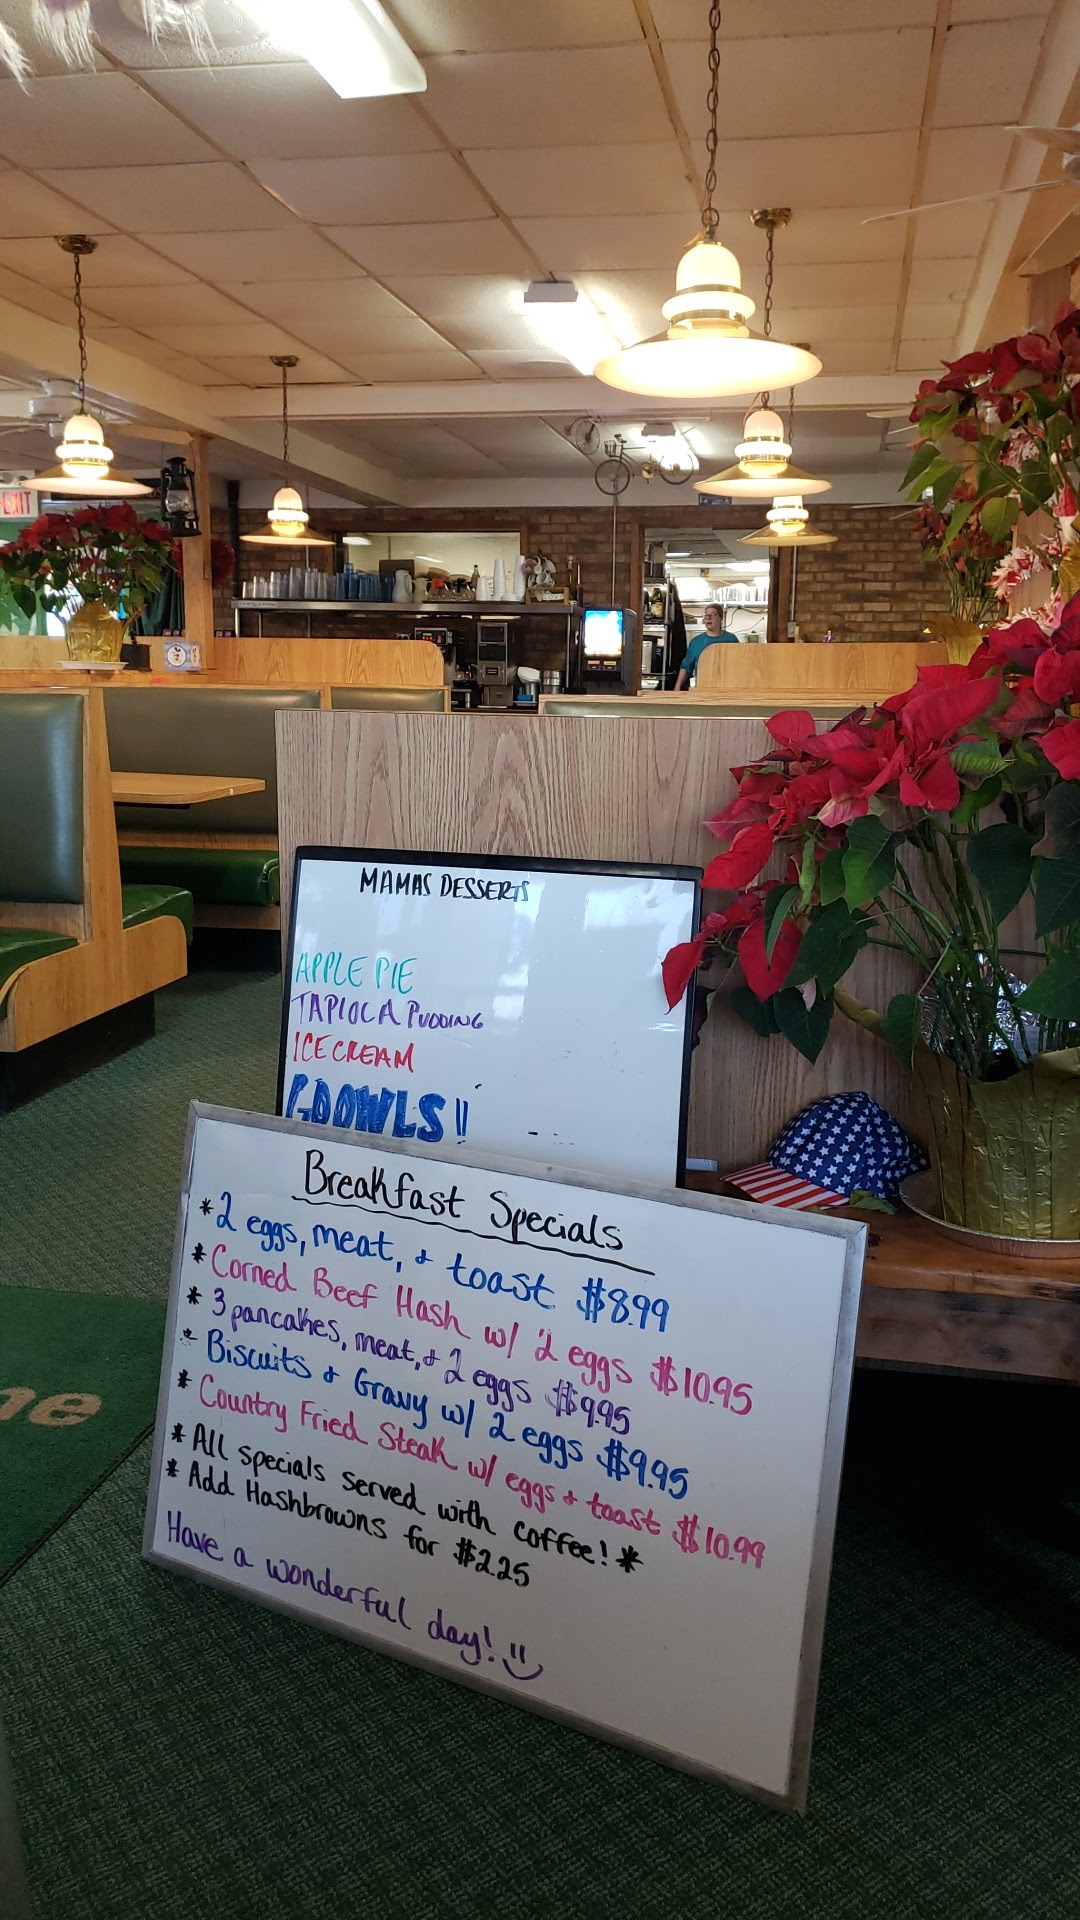 EXIT
MAMAS DESSERTS
APPLE PIE
TAPIOCA PUDDING
ICE CREAM
Breakfast Specials
*2 eggs, meat, + toast $8.99
*Corned Beef Hash w/ 2 eggs $10.95
* 3 pancakes, meat, + 2 eggs $9.95
* Biscuits + Gravy w/ 2 eggs $9.95
* Country Fried Steak w/ eggs + toast $10.99
*All specials served with coffee! *
* Add Hashbrowns for $2.25
Have a wonderful day!